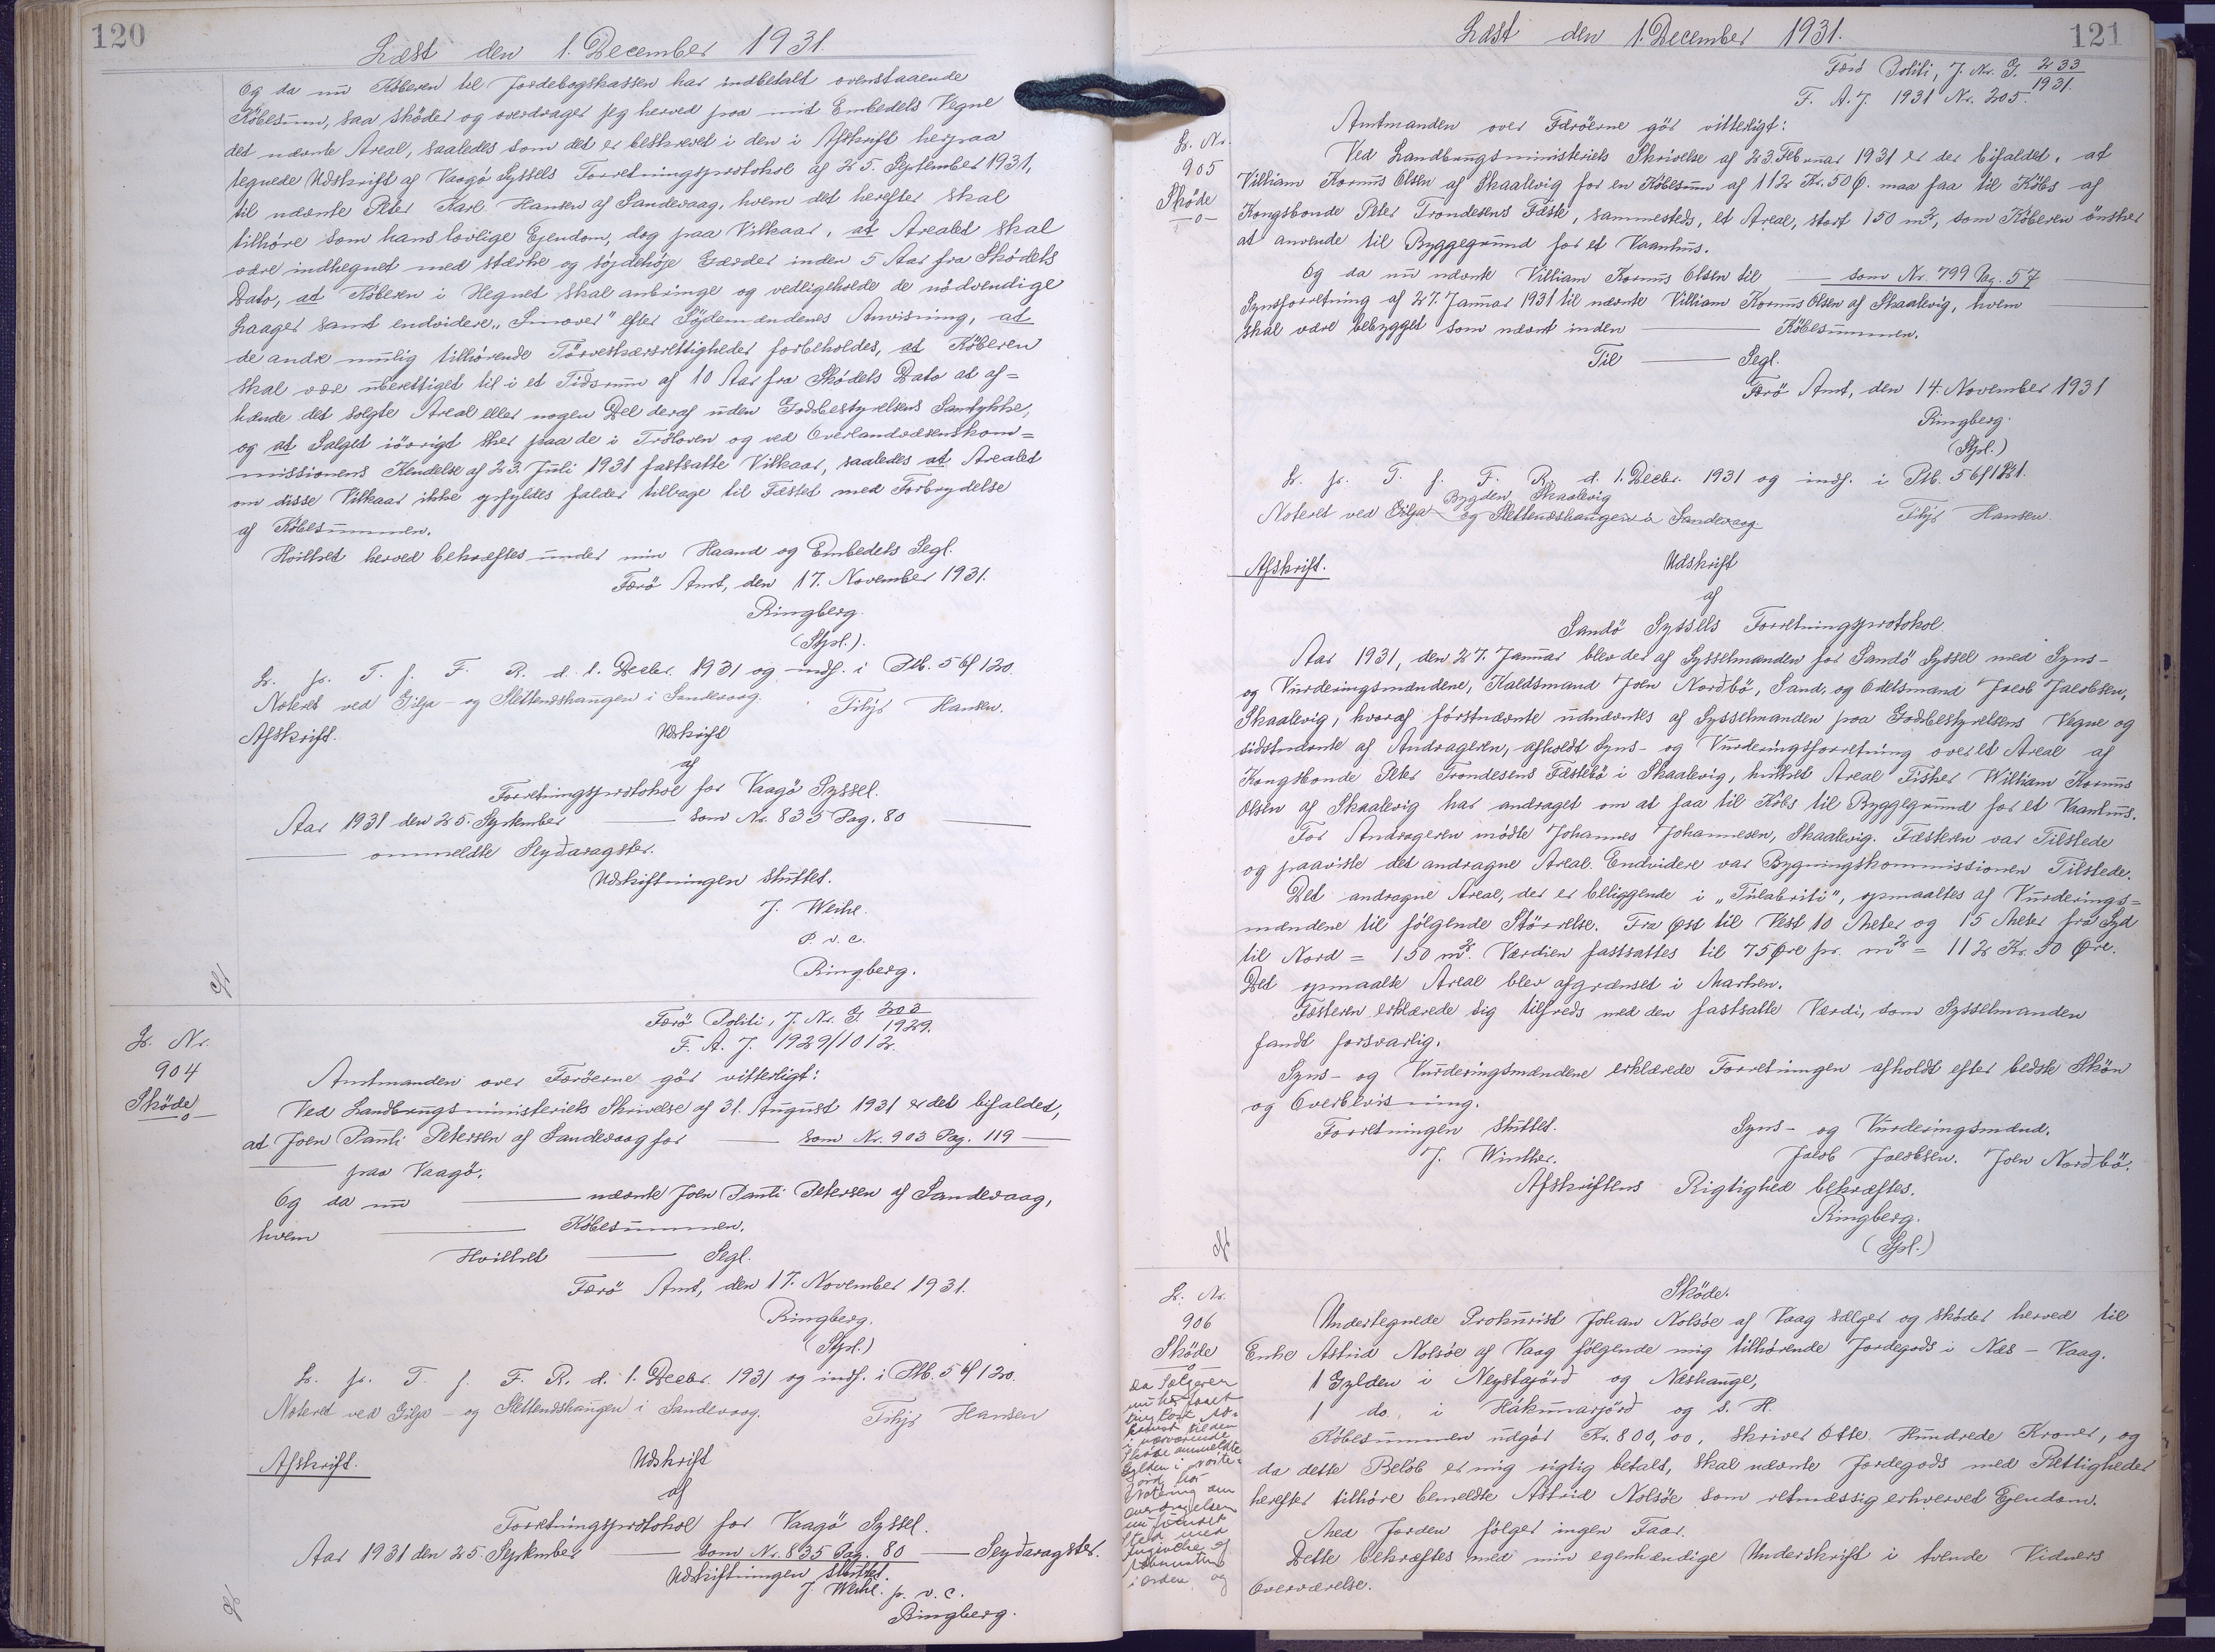 120
Læst den 1. December 1931.
Og da nu Köberen til Jordebogskassen har indbetalt ovenstaaende
Köbesum, saa sköder og overdrager jeg herved paa mit Embedets Vegne
det nævnte Areal, saaledes som det er beskrevet i den i Afskrift herpaa
tegnede Udskrift af Vaagö Syssels Forretningsprotokol af 25. September 1931,
til nævnte Peter Karl Hansen af Sandevaag, hvem det herefter skal
tilhöre som hans lovlige Ejendom, dog paa Vilkaar, at Arealet skal
være indhegnet med stærke og söjdehöje Gærder inden 5 Aar fra Sködets
Dato, at Köberen i Hegnet skal anbringe og vedligeholde de nödvendige
Laager samt endvidere „Smover" efter Söjdemændenes Anvisning, at
de andre mulig tilhörende Törveskærsrettigheder forbeholdes, at Köberen
skal være uberettiget til i et Tidsrum af 10 Aar fra Sködets Dato at af=
hænde det solgte Areal eller nogen Del deraf uden Godsbestyrelsens Samtykke,
og at Salget iövrigt sker paa de i Tröloven og ved Overlandvæsenskom=
missionens Kendelse af 23. Juli 1931 fastsatte Vilkaar, saaledes at Arealet
om disse Vilkaar ikke opfyldes falder tilbage til Fæstet med Forbrydelse
af Köbesummen.
Hvilket herved bekræftes under min Haand og Embedets Segl.
Færö Amt, den 17. November 1931.
Ringberg.
(Stpl.).
L. p. T. f. F. R. d. 1. Decbr. 1931 og indf. i Ptb. 5 bf 120.
Noteret ved Gilja- og Slettenæshaugen i Sandevaag. Filip Hansen.
Afskrift. Udskrift
af
Forretningsprotokol for Vaagö Syssel.
Aar 1931 den 25. September — som Nr. 835 Pag. 80 —
— ommeldte Seydaragster.
Udskriftningen sluttet.
J. Weihe.
P. v. c.
Ringberg.
L. Nr.
904
Sköde
Færö Politi, J. Nr. G. 303/1929.
F. A. J. 1929/1012.
Amtmanden over Færöerne gör vitterligt:
Ved Landbrugsministeriets Skrivelse af 31. August 1931 er det bifaldet,
at Joen Pauli Petersen af Sandevaag for — som Nr. 903 Pag. 119 —
— paa Vaagö.
Og da nu — nævnte Joen Pauli Petersen af Sandevaag,
hvem — Köbesummen.
Hvilket — Segl.
Færö Amt, den 17. November 1931.
Ringberg.
(Stpl.)
L. p. T. f. F. R. d. 1. Decbr. 1931 og indf. i Ptb. 5 bf 120.
Noteret ved Gilja- og Slettenæshaugen i Sandevaag. Filip Hansen
Afskrift. Udskrift
af
Forretningsprotokol for Vaagö Syssel.
Aar 1931 den 25. September — som Nr. 835 Pag. 80 — Seydaragster.
Udskriftningen sluttet.
J. Weihe. p. v. c.
Ringberg.
121
Læst den 1. December 1931.
Færö Politi, J. Nr. G. 233/1931.
F. A. J. 1931 Nr. 205.
L. Nr.
905
Sköde
Amtmanden over Færöerne gör vitterligt:
Ved Landbrugsministeriets Skrivelse af 23. Februar 1931 er der bifaldet, at
Villiam Kornus Olsen af Skaalevig for en Köbesum af 112 Kr. 50 Ø. maa faa til Köbs af
Kongsbonde Peter Trondesens Fæste, sammesteds, et Areal, stort 150 m², som Köberen önsker
at anvende til Byggegrund for et Vaanhus.
Og da nu nævnte Villiam Kornus Olsen til — som Nr. 799 Pag. 57
Synsforretning af 27. Januar 1931 til nævnte Villiam Kornus Olsen af Skaalevig, hvem
skal være bebygget som nævnt inden — Köbesummen.
Til — Segl.
Færö Amt, den 14. November 1931
Ringberg.
(Stpl.)
L. p. T. f. F. R. d. 1. Decbr. 1931 og indf. i Ptb. 5 bf 121.
Bygden Skaalevig
Noteret ved Gilja- og Slettenæshaugen i Sandevaag. Filip Hansen.
Afskrift. Udskrift
af
Sandö Syssels Forretningsprotokol
Aar 1931, den 27. Januar blev der af Sysselmanden for Sandö Syssel med Syns-
og Vurderingsmændene, Kaldsmand Joen Nordbö, Sand, og Odelsmand Jacob Jacobsen,
Skaalevig, hvoraf förstnævnte udnævntes af Sysselmanden paa Godsbestyrelsens Vegne og
sidstnævnte af Andrageren, afholdt Syns- og Vurderingsforretning over et Areal af
Kongsbonde Peter Trondesens Fæstebö i Skaalevig, hvilket Areal Fisker William Kornus
Olsen af Skaalevig har andraget om at faa til Köbs til Byggegrund for et Vaanhus.
For Andrageren mödte Johannes Johannesen, Skaalevig. Fæsteren var Tilstede
og paaviste det andragne Areal. Endvidere var Bygningskommissionen Tilstede.
Det andragne Areal, der er beliggende i „Tulabriti", opmaaltes af Vurderings=
mændene til fölgende Störrelse. Fra Øst til Vest 10 Meter og 15 Meter fra Syd
til Nord = 150 m². Værdien fastsattes til 75 Øre pr. m² = 112 Kr. 50 Øre.
Det opmaalte Areal blev afgrænset i Marken.
Fæsteren erklærede sig tilfreds med den fastsatte Værdi, som Sysselmanden
fandt forsvarlig.
Syns- og Vurderingsmændene erklærede Forretningen afholdt efter bedste Skön
og Overbevisning.
Forretningen sluttet. Syns- og Vurderingsmænd.
J. Winther. Jacob Jacobsen. Joen Nordbö.
Afskriftens Rigtighed bekræftes.
Ringberg.
(Stpl.)
L. Nr.
906
Sköde
Da Sælgeren
nu har faaet
tinglæst Ad-
komst til den
i nærværende
Sköde ommeldte
Gylden i
Jörd, har
Notering om
overdragelsen
nu fundet
Sted med
i Orden, og
Sköde.
Undertegnede Prokurist Johan Nolsöe af Vaag sælger og sköder herved til
Enke Astrid Nolsöe af Vaag fölgende mig tilhörende Jordegods i Næs - Vaag.
1 Gylden i Neystajörd og Næshauge,
1 do. i Hákunarjörd og s. H.
Köbesummen udgör Kr. 800,00, skriver Otte Hundrede Kroner, og
da dette Belöb er mig rigtig betalt, skal nævnte Jordegods med Rettigheder
herefter tilhöre bemeldte Astrid Nolsöe som retmæssig erhvervet Ejendom.
Med Jorden fölger ingen Faar.
Dette bekræftes med min egenhændige Underskrift i tvende Vidners
Overværelse.